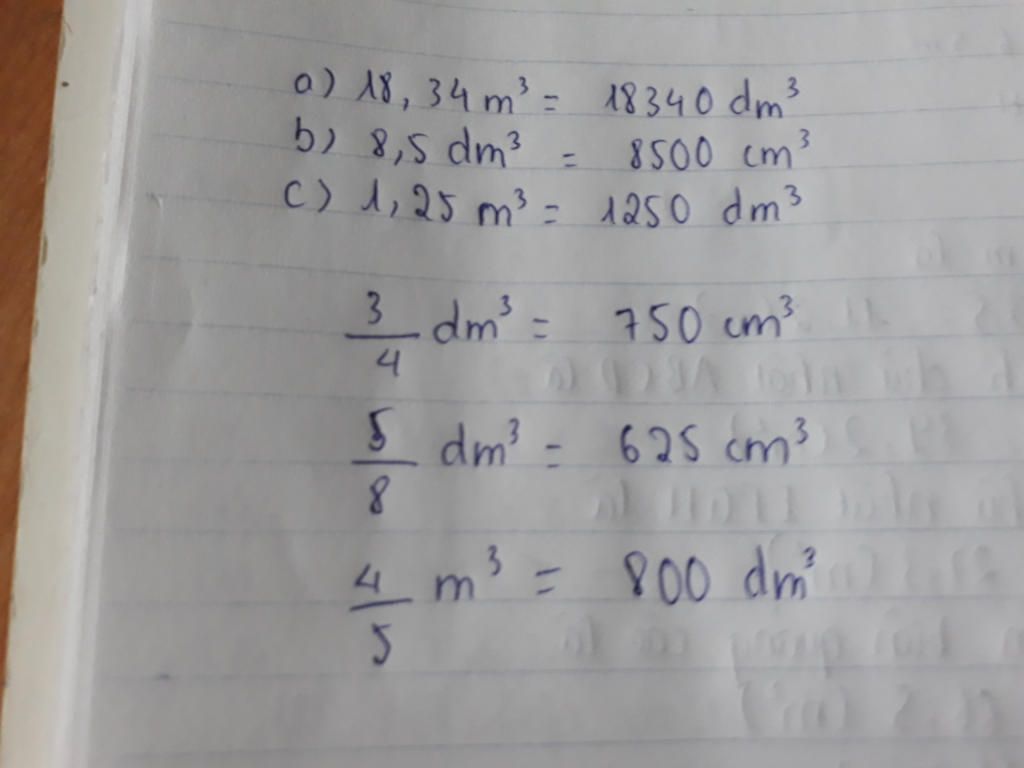 a) 18,34 m³ = 18340 dm³
b) 8,5 dm³ = 8500 cm³
c) 1,25 m³ = 1250 dm³
3/4 dm³ = 750 cm³
5/8 dm³ = 625 cm³
4/5 m³ = 800 dm³